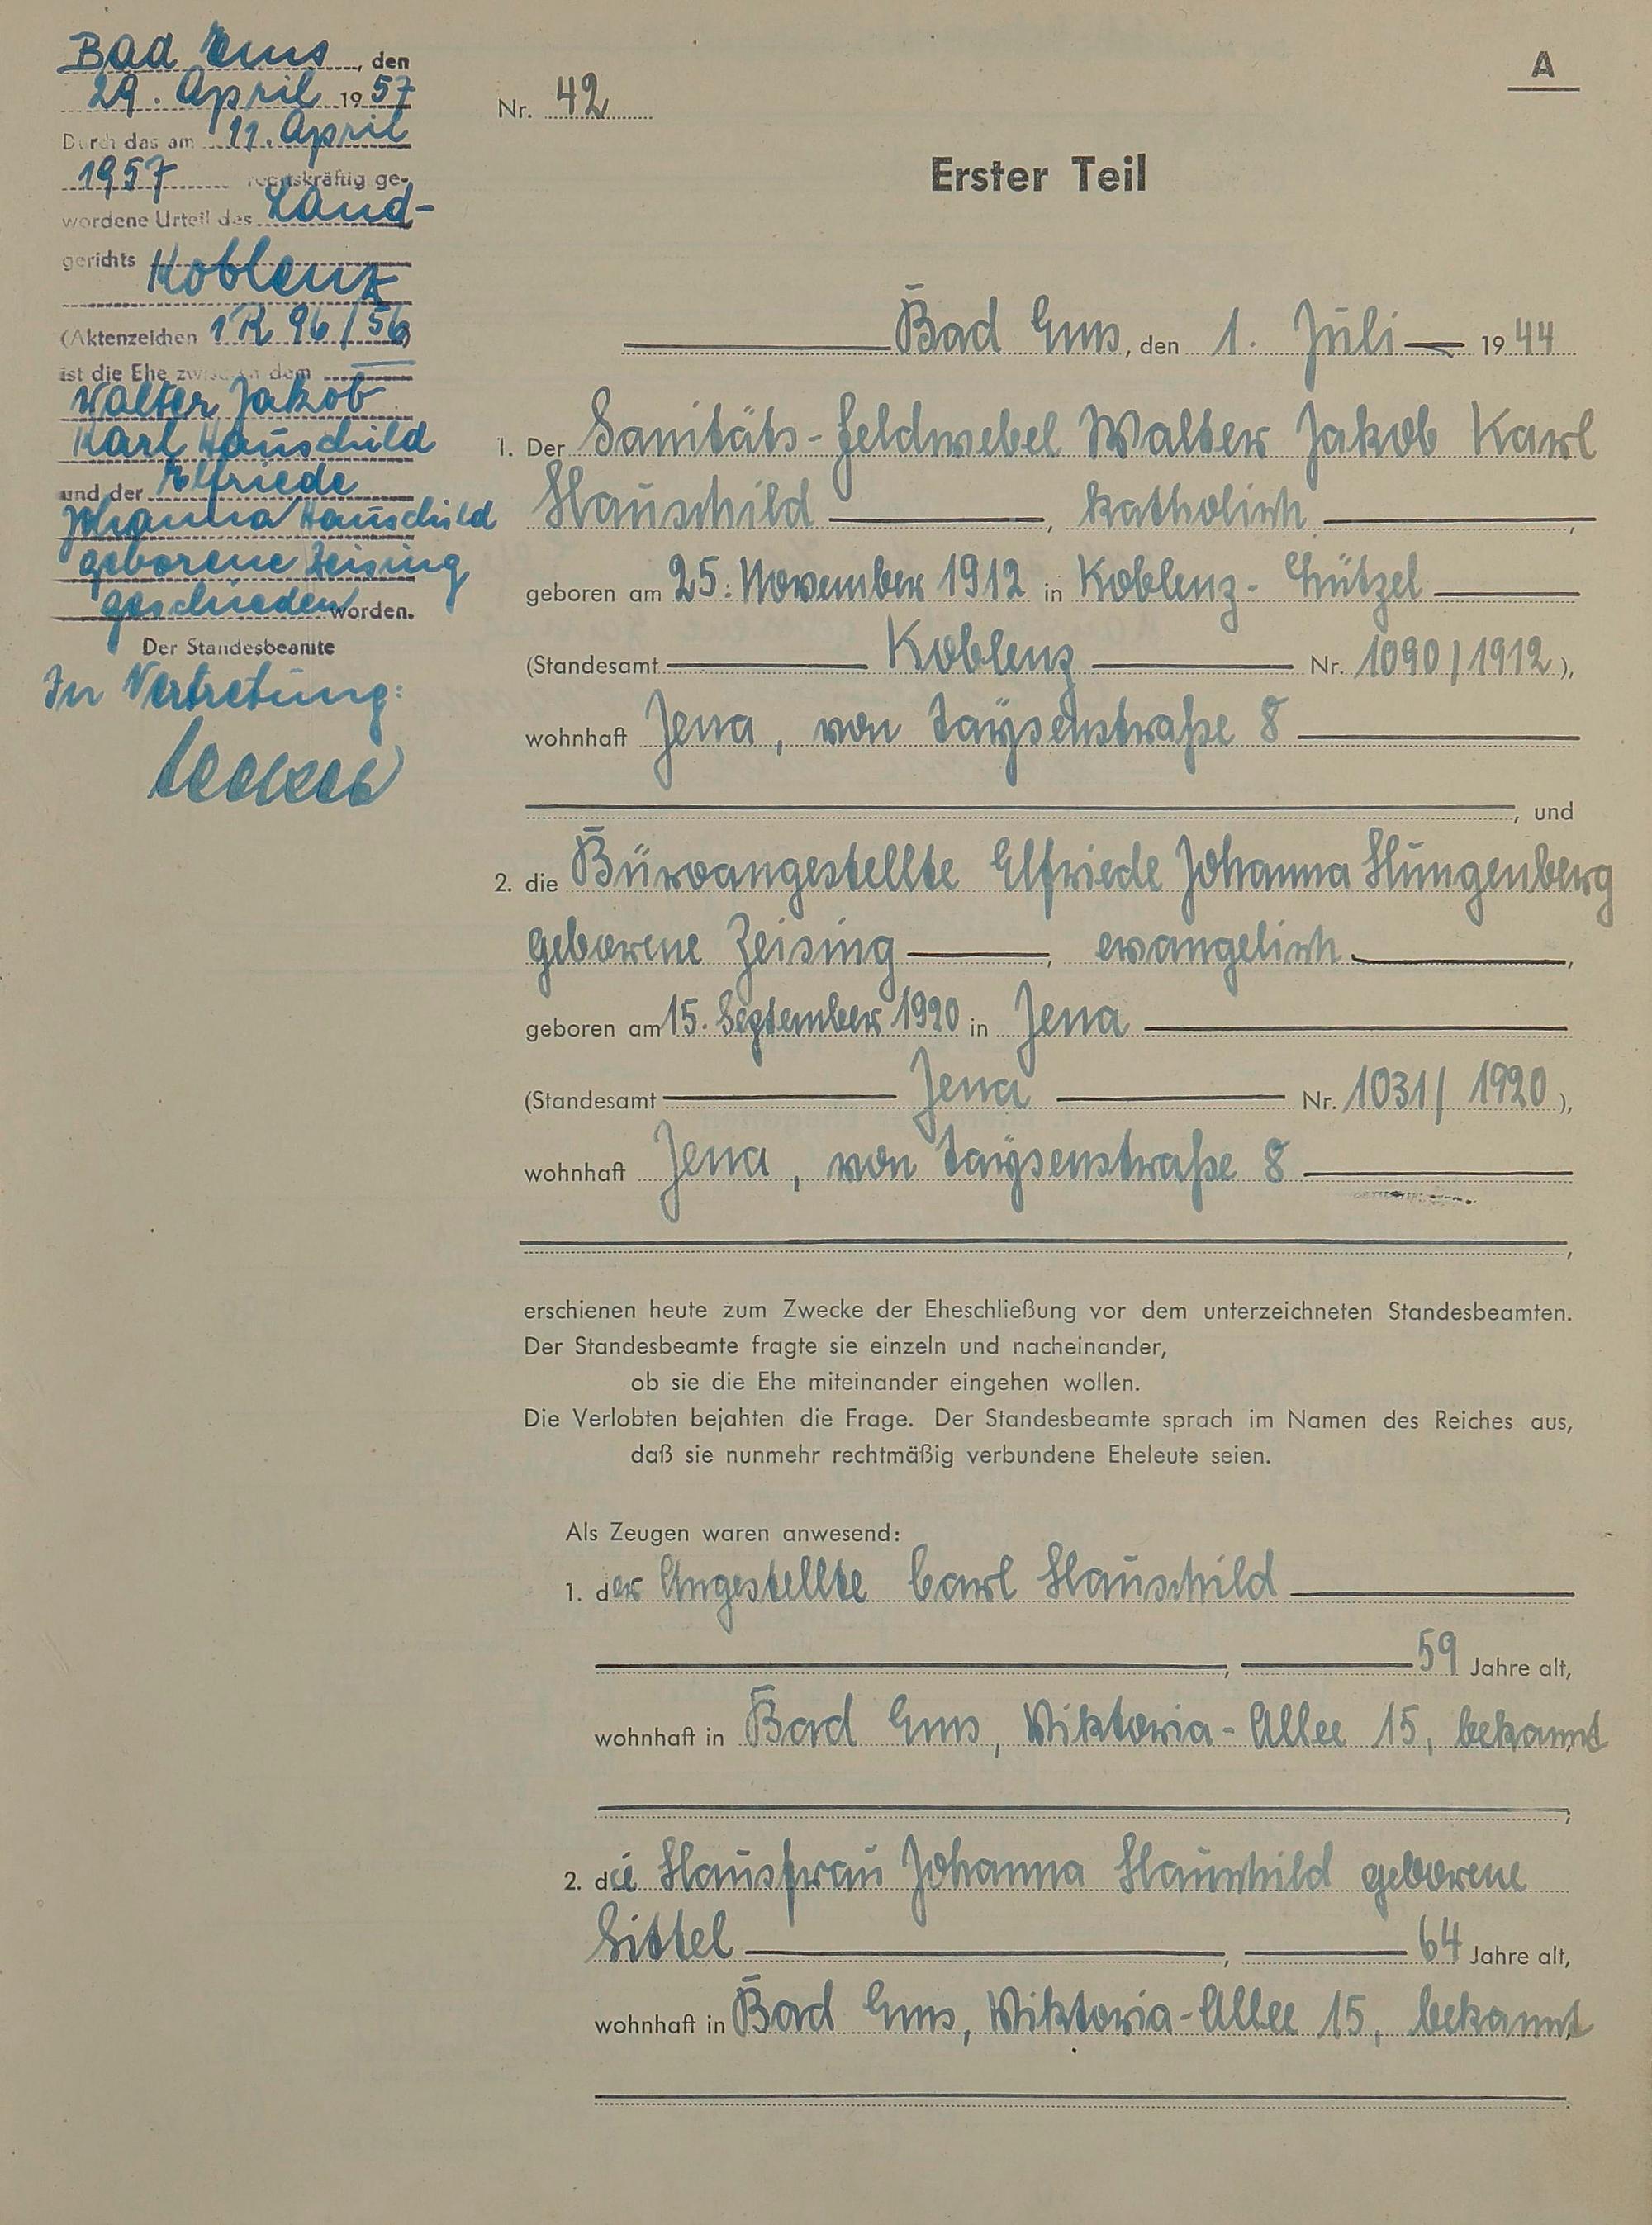 Bad Ems, den
29. April 1957
Durch das am 11. April
1957 rechtskräftig ge-
wordene Urteil des Land-
gerichts Koblenz
(Aktenzeichen 1 R 96/56)
ist die Ehe zwischen dem
Walter Jakob
Karl Hauschild
und der Elfriede
Johanna Hauschild
geborene Zeising
geschieden worden.
Der Standesbeamte
In Vertretung:
A
Nr. 42
Erster Teil
Bad Ems, den 1. Juli 1944
1. Der Sanitäts-Feldwebel Walter Jakob Karl
Hauschild, katholisch,
geboren am 25. November 1912 in Koblenz-Lützel
(Standesamt Koblenz Nr. 1090/1912),
wohnhaft Jena, von Taysenstraße 8
, und
2. die Büroangestellte Elfriede Johanna Hungenberg
geborene Zeising, evangelisch,
geboren am 15. September 1920 in Jena
(Standesamt Jena Nr. 1031/1920),
wohnhaft Jena, von Taysenstraße 8
,
erschienen heute zum Zwecke der Eheschließung vor dem unterzeichneten Standesbeamten.
Der Standesbeamte fragte sie einzeln und nacheinander,
ob sie die Ehe miteinander eingehen wollen.
Die Verlobten bejahten die Frage. Der Standesbeamte sprach im Namen des Reiches aus,
daß sie nunmehr rechtmäßig verbundene Eheleute seien.
Als Zeugen waren anwesend:
1. der Angestellte Carl Hauschild
, 59 Jahre alt,
wohnhaft in Bad Ems, Viktoria-Allee 15, bekannt
;
2. die Hausfrau Johanna Hauschild geborene
Sittel, 64 Jahre alt,
wohnhaft in Bad Ems, Viktoria-Allee 15, bekannt
.